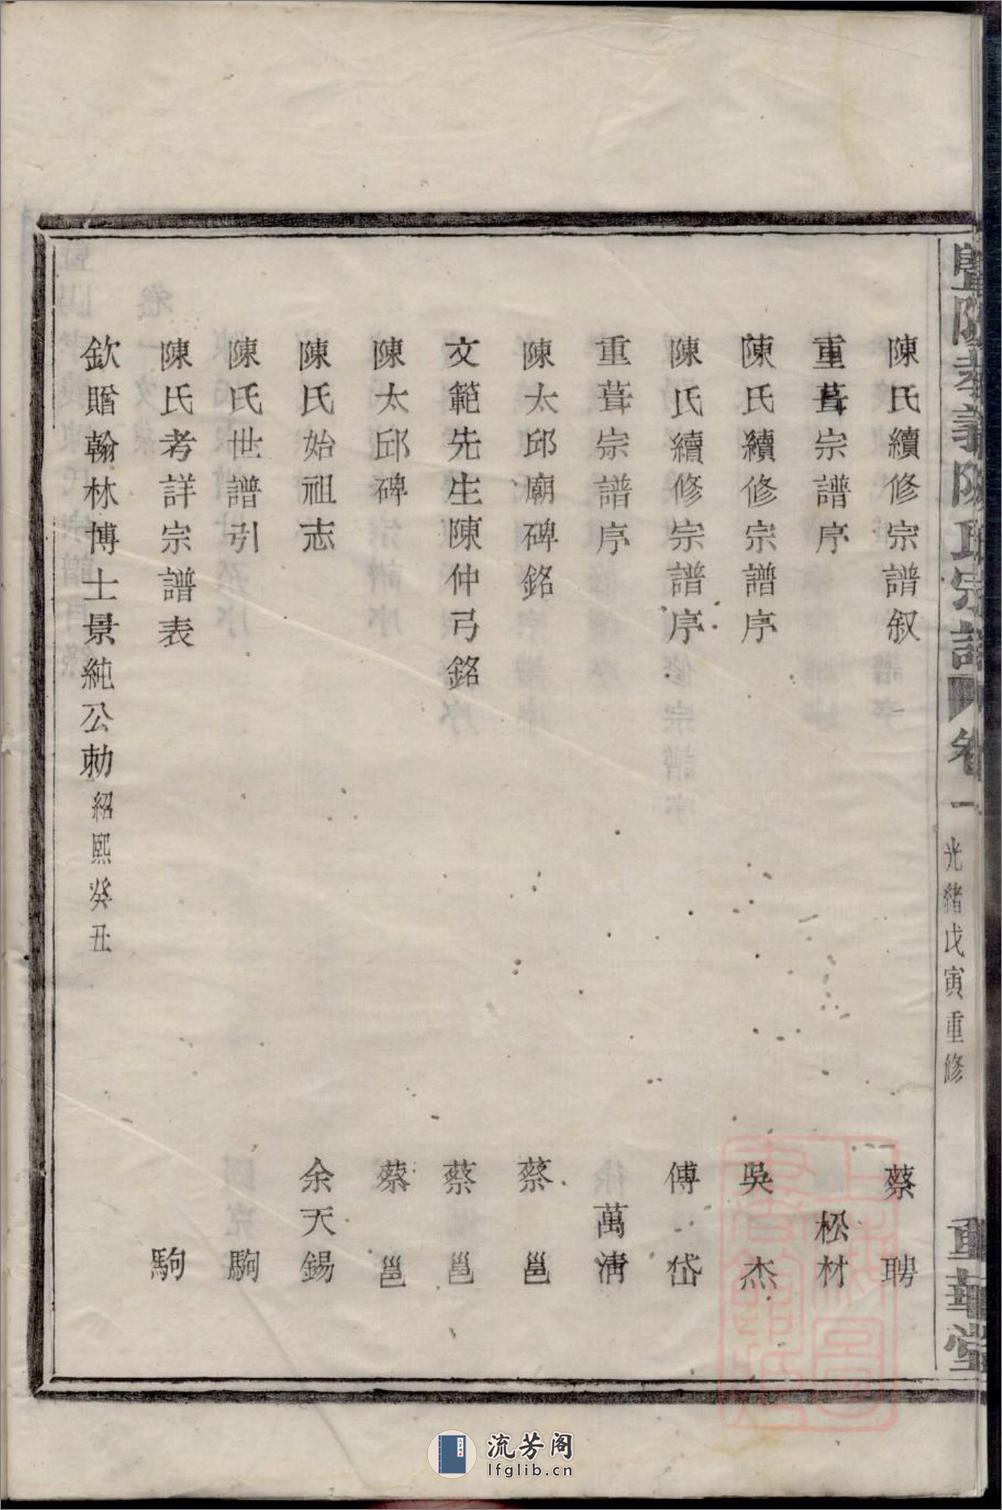 暨陽孝義陳氏宗譜 卷一 光緒戊寅重修 重華堂
陳氏續修宗譜叙 蔡聘
重葺宗譜序 松材
陳氏續修宗譜序 吳杰
陳氏續修宗譜序 傅岱
重葺宗譜序 萬清
陳太邱廟碑銘 蔡邕
文範先生陳仲弓銘 蔡邕
陳太邱碑 蔡邕
陳氏始祖志 余天錫
陳氏世譜引 駒
陳氏考詳宗譜表 駒
欽贈翰林博士景純公勅 紹熙癸丑
流芳阁
lfglib.cn